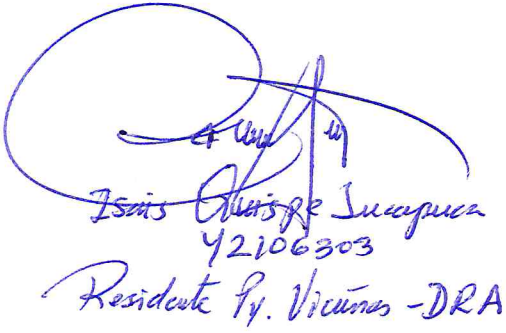 Isais Quispe Jucapuca
42106303
Residente Py. Vicuñas - DRA